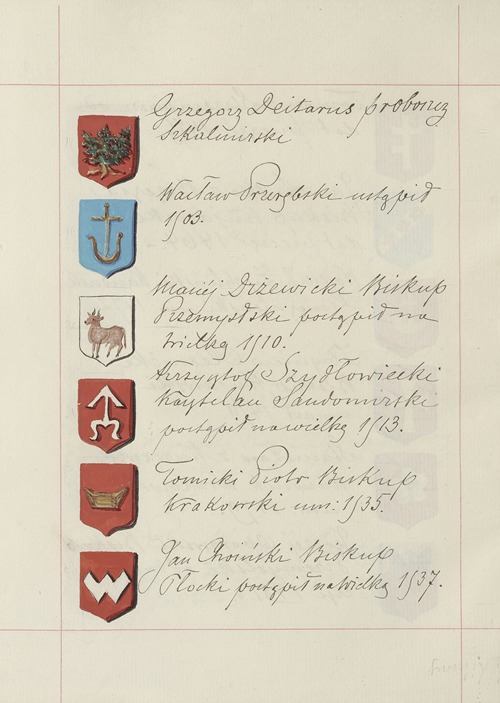 Grzegorz Deitarus proboszcz
Szkalmirski
Wacław Przerębski ustąpił
1503.
Maciéj Drzewicki Biskup
Przemyślski postąpił na
wielką 1510.
Krzysztof Szydłowiecki
Kasztelan Sandomirski
postąpił na wielką 1513.
Tomicki Piotr Biskup
Krakowski um: 1535.
Jan Choiński Biskup
Płocki postąpił na Wielką 1537.